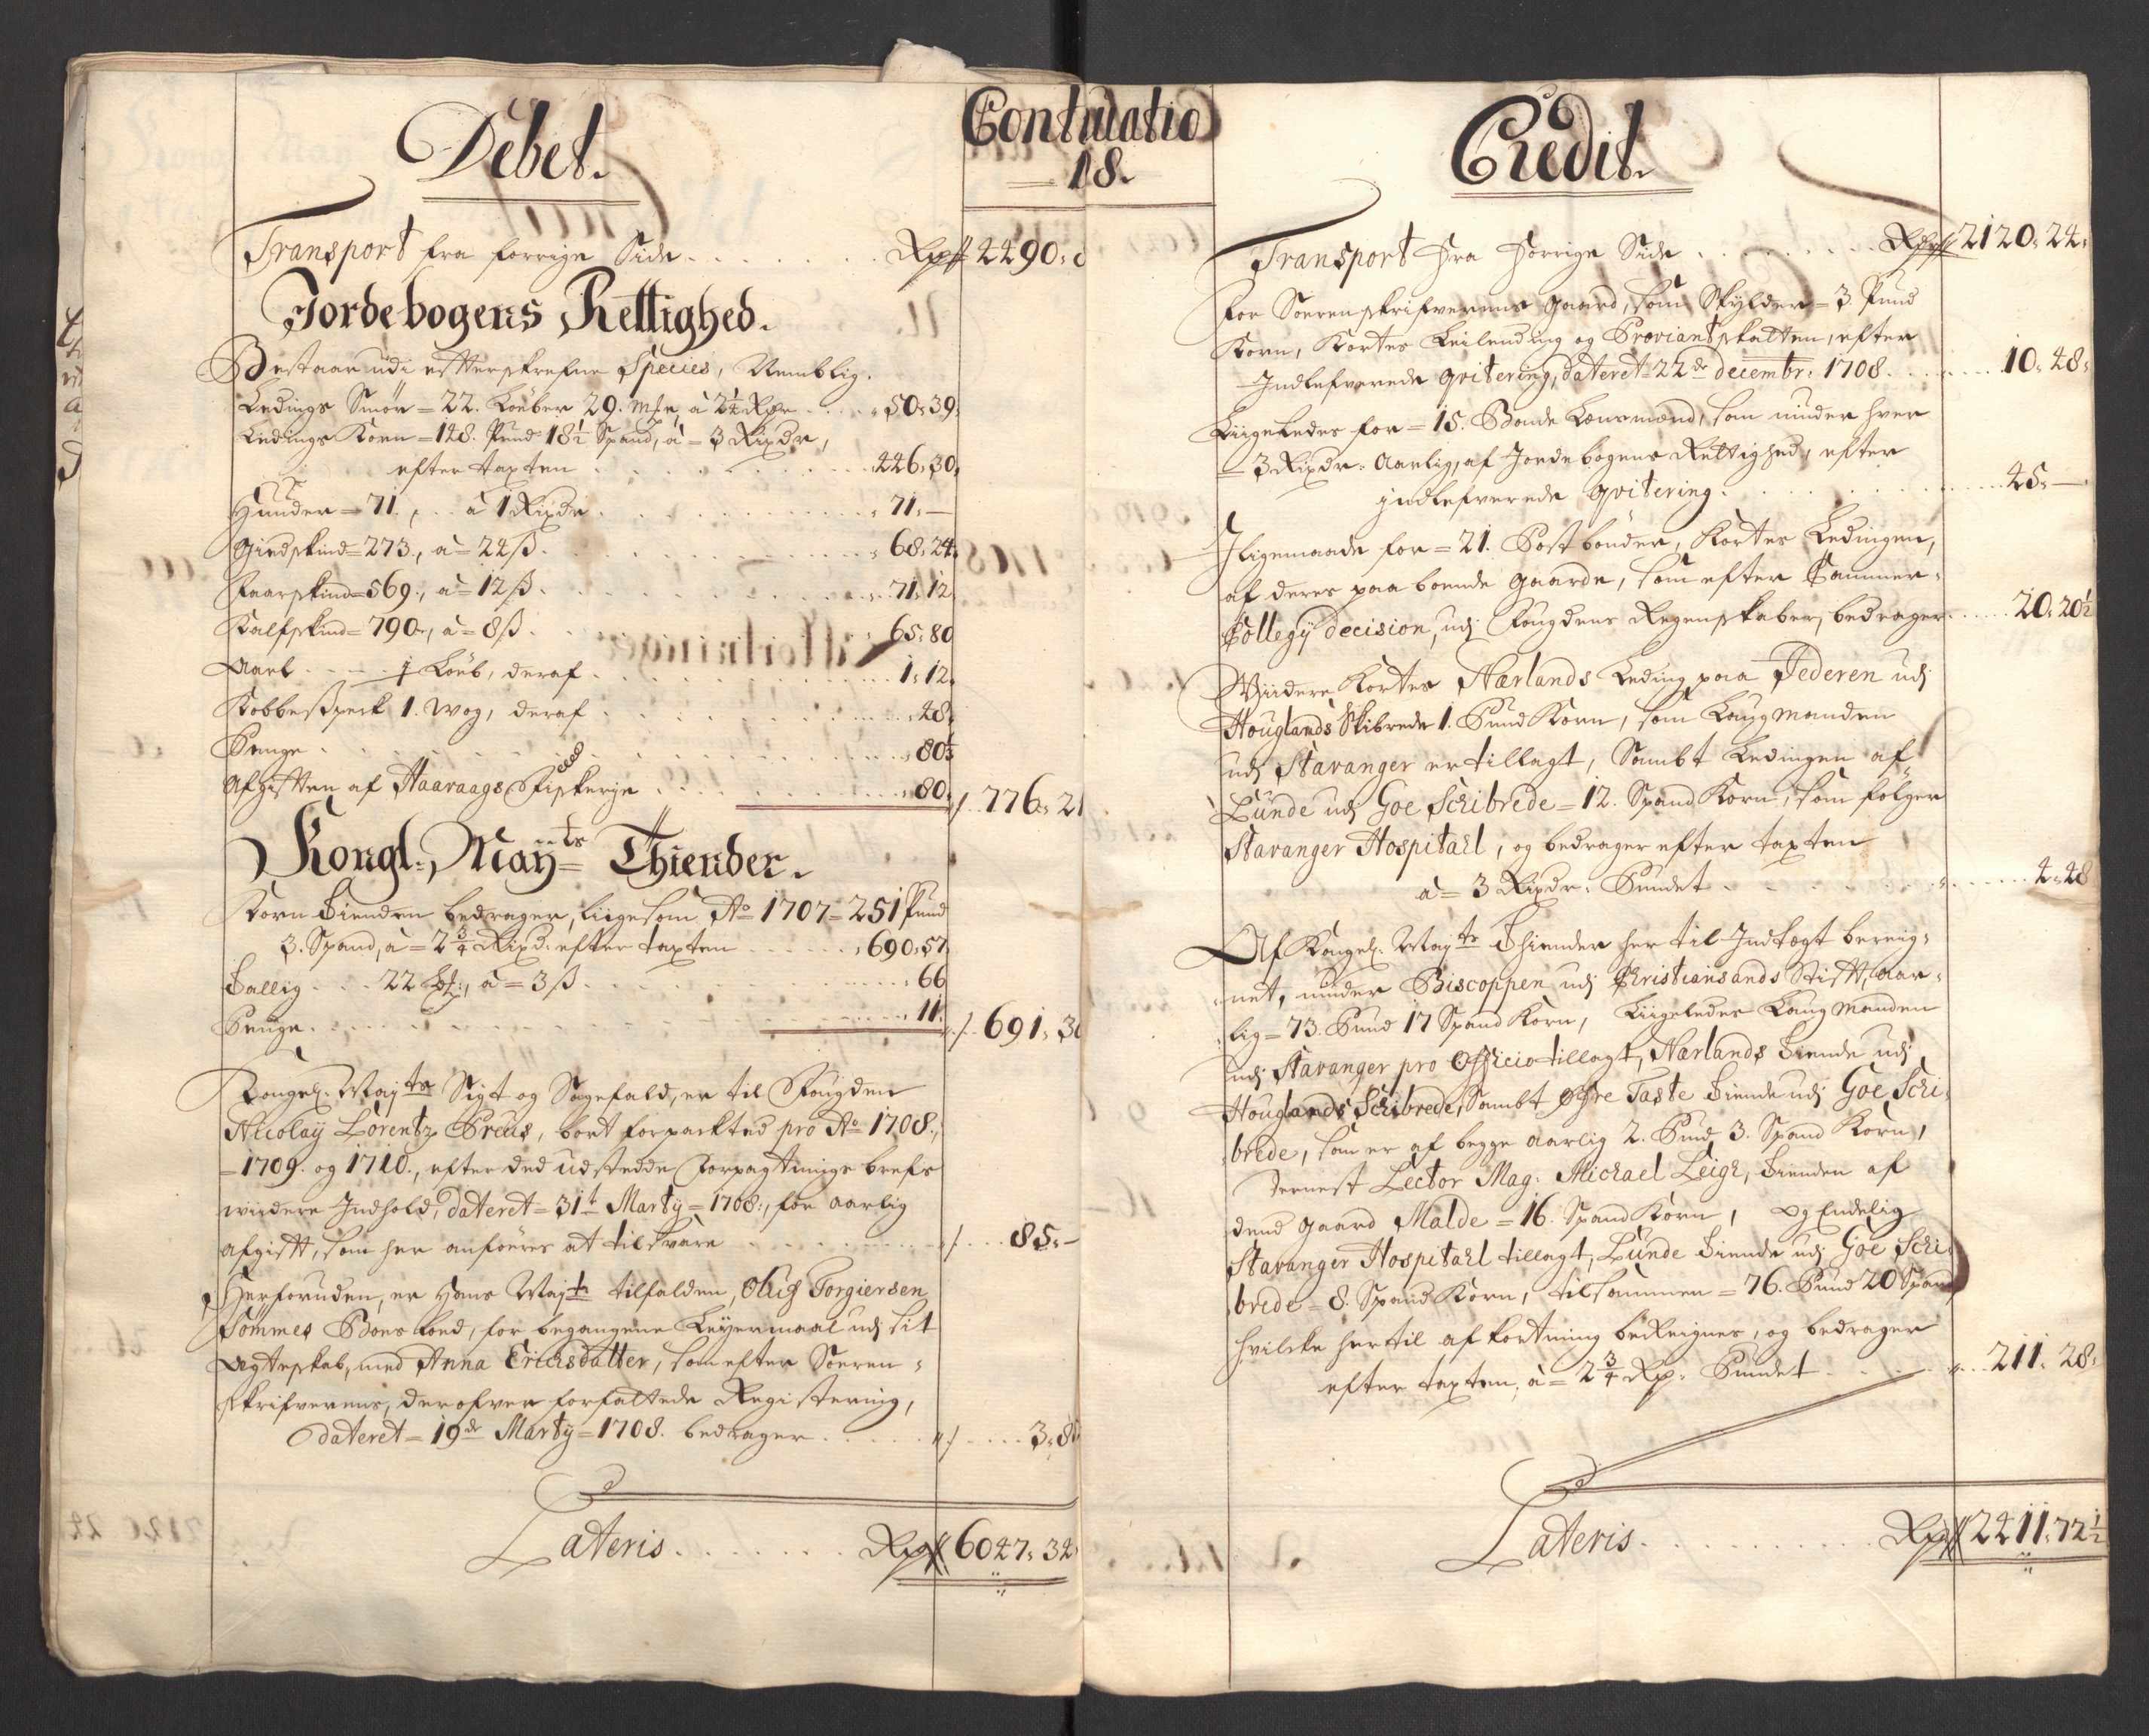 Debet.
Transport fra forrige Side . . . . . . Rdr 4490:
Jordebogens Rettighed.
Bestaar udi effterskrefne Species, Nemblig.
Ledings Smør = 22. Løuber 29. mrk, à 2¼ Rdr . . . 50:39:
Ledings Korn = 148. Pund 18½ Spand, à = 3 Rixdr,
efter taxten . . . . . . 446:30:
Hunder = 71. . . . à 1 Rixdr . . . . . 71:—
Giedskind = 273, a = 24 ß . . . . . 68:24:
Faarskind = 569, a = 12 ß . . . . . 71:12
Kalfskind = 790, a = 8 ß . . . . . 65:80
Aael . . . . 1 Løub, deraf . . . . . 1:12.
Kobbespeck 1. Wog, deraf . . . . . 48:
Penge . . . . . . 80½
Afgifften af Haaraags Fiskerje . . . . . 80. /. 776:21
Kongl: Mayts Thiender.
Korn Tienden bedrager, liigesom Ao 1707 = 251 Pund
3. Spand, à = 2¾ Rixd: efter taxten . . . . 690:57
Tallig . . . 22 , à = 3 ß . . . . . 66
Penge . . . . . . 11. /. 691:3
Kongel: Mayts Sigt og Sagefald, er til Fougden
Nicolaÿ Lorentz Preus, bort forpackted pro Ao 1708.,
= 1709. og 1710., efter ded udstedde Forpagtnings brefs
widere Indhold, dateret = 31t Martÿ = 1708:, for aarlig
afgifft, som her anføeres at tilsvare . . . . /. . . 85:—
Herforuden, er Hans Mayts tilfalden, Oluf Torgiersen
Sommes Boes lod, for begangene Leÿermaal udj sit
Egteskab, med Anna Erichsdatter, som efter Soeren-
skrifverens, derofver forfattede Registering,
dateret = 19de Martÿ = 1708. bedrager . . . . /. . . . 3:8
Lateris . . . . . . Rdr 6047:34
Contribiatio
18.
Credit.
Transport fra forrige Side . . . . . . Rdr 2120:24:
For Soerenskrifverens Gaard, som Skylder = 3 Pund
Korn, Kortes Leilending og Proviantskatten, efter
Indlefverede qvitering, dateret 22de decembr: 1708. . . . . 10:48:
Liigeledes for = 15. Bonde Lensmænd, som nyder hver
= 3 Rixdr: Aarlig, af Jordebogens Rettighed, efter
indlefverede qvitering . . . . . . 45:—
Iligemaade for = 21. Postbønder, Kortes Ledingen,
af deres paa boende gaarde, som efter Cammer-
Collegÿ decision, udj Fougdens Regenskaber, bedrager . . . . 20:20½
Wiidere Kortes Nærlands Leding paa Jederen udj
Houglands Skibrede 1. Pund Korn, som Laugmanden
udj Stavanger er tillagt, Sambt Ledingen af
Lunde udj Goe Schibrede = 12. Spand Korn, som følger
Stavanger Hospitahl, og bedrager efter taxten
à = 3 Rixdr: Pundet . . . . . . 4:48
Af Kongel: Mayts Thiender her til Indtægt bereig-
net, nyder Biscoppen udj Christiansands Stifft, aar-
lig = 73. Pund 17 Spand Korn, Liigeledes Laugmanden
udj Stavanger pro Officio tillagt, Nærlands Tiende udj
Houglands Schibrede, Sambt Øfre Taste Tiende udj Goe Schi-
brede, som er af begge aarlig 2. Pund 3. Spand Korn,
dernest Lector Mag: Michael Leigh, Tienden af
dend gaard Malde = 16. Spand Korn, og Endelig
Stavanger Hospitahl tillagt, Lunde Tiende udj Goe Schi-
brede = 8. Spand Korn, tilsammen = 76. Pund 20 Spand
hvilcke hertil afkortning bereignes, og bedrager
efter taxten, à = 2¾ Rdr: Pundet . . . . . 211:28:
Lateris . . . . . . Rdr 2411:72½